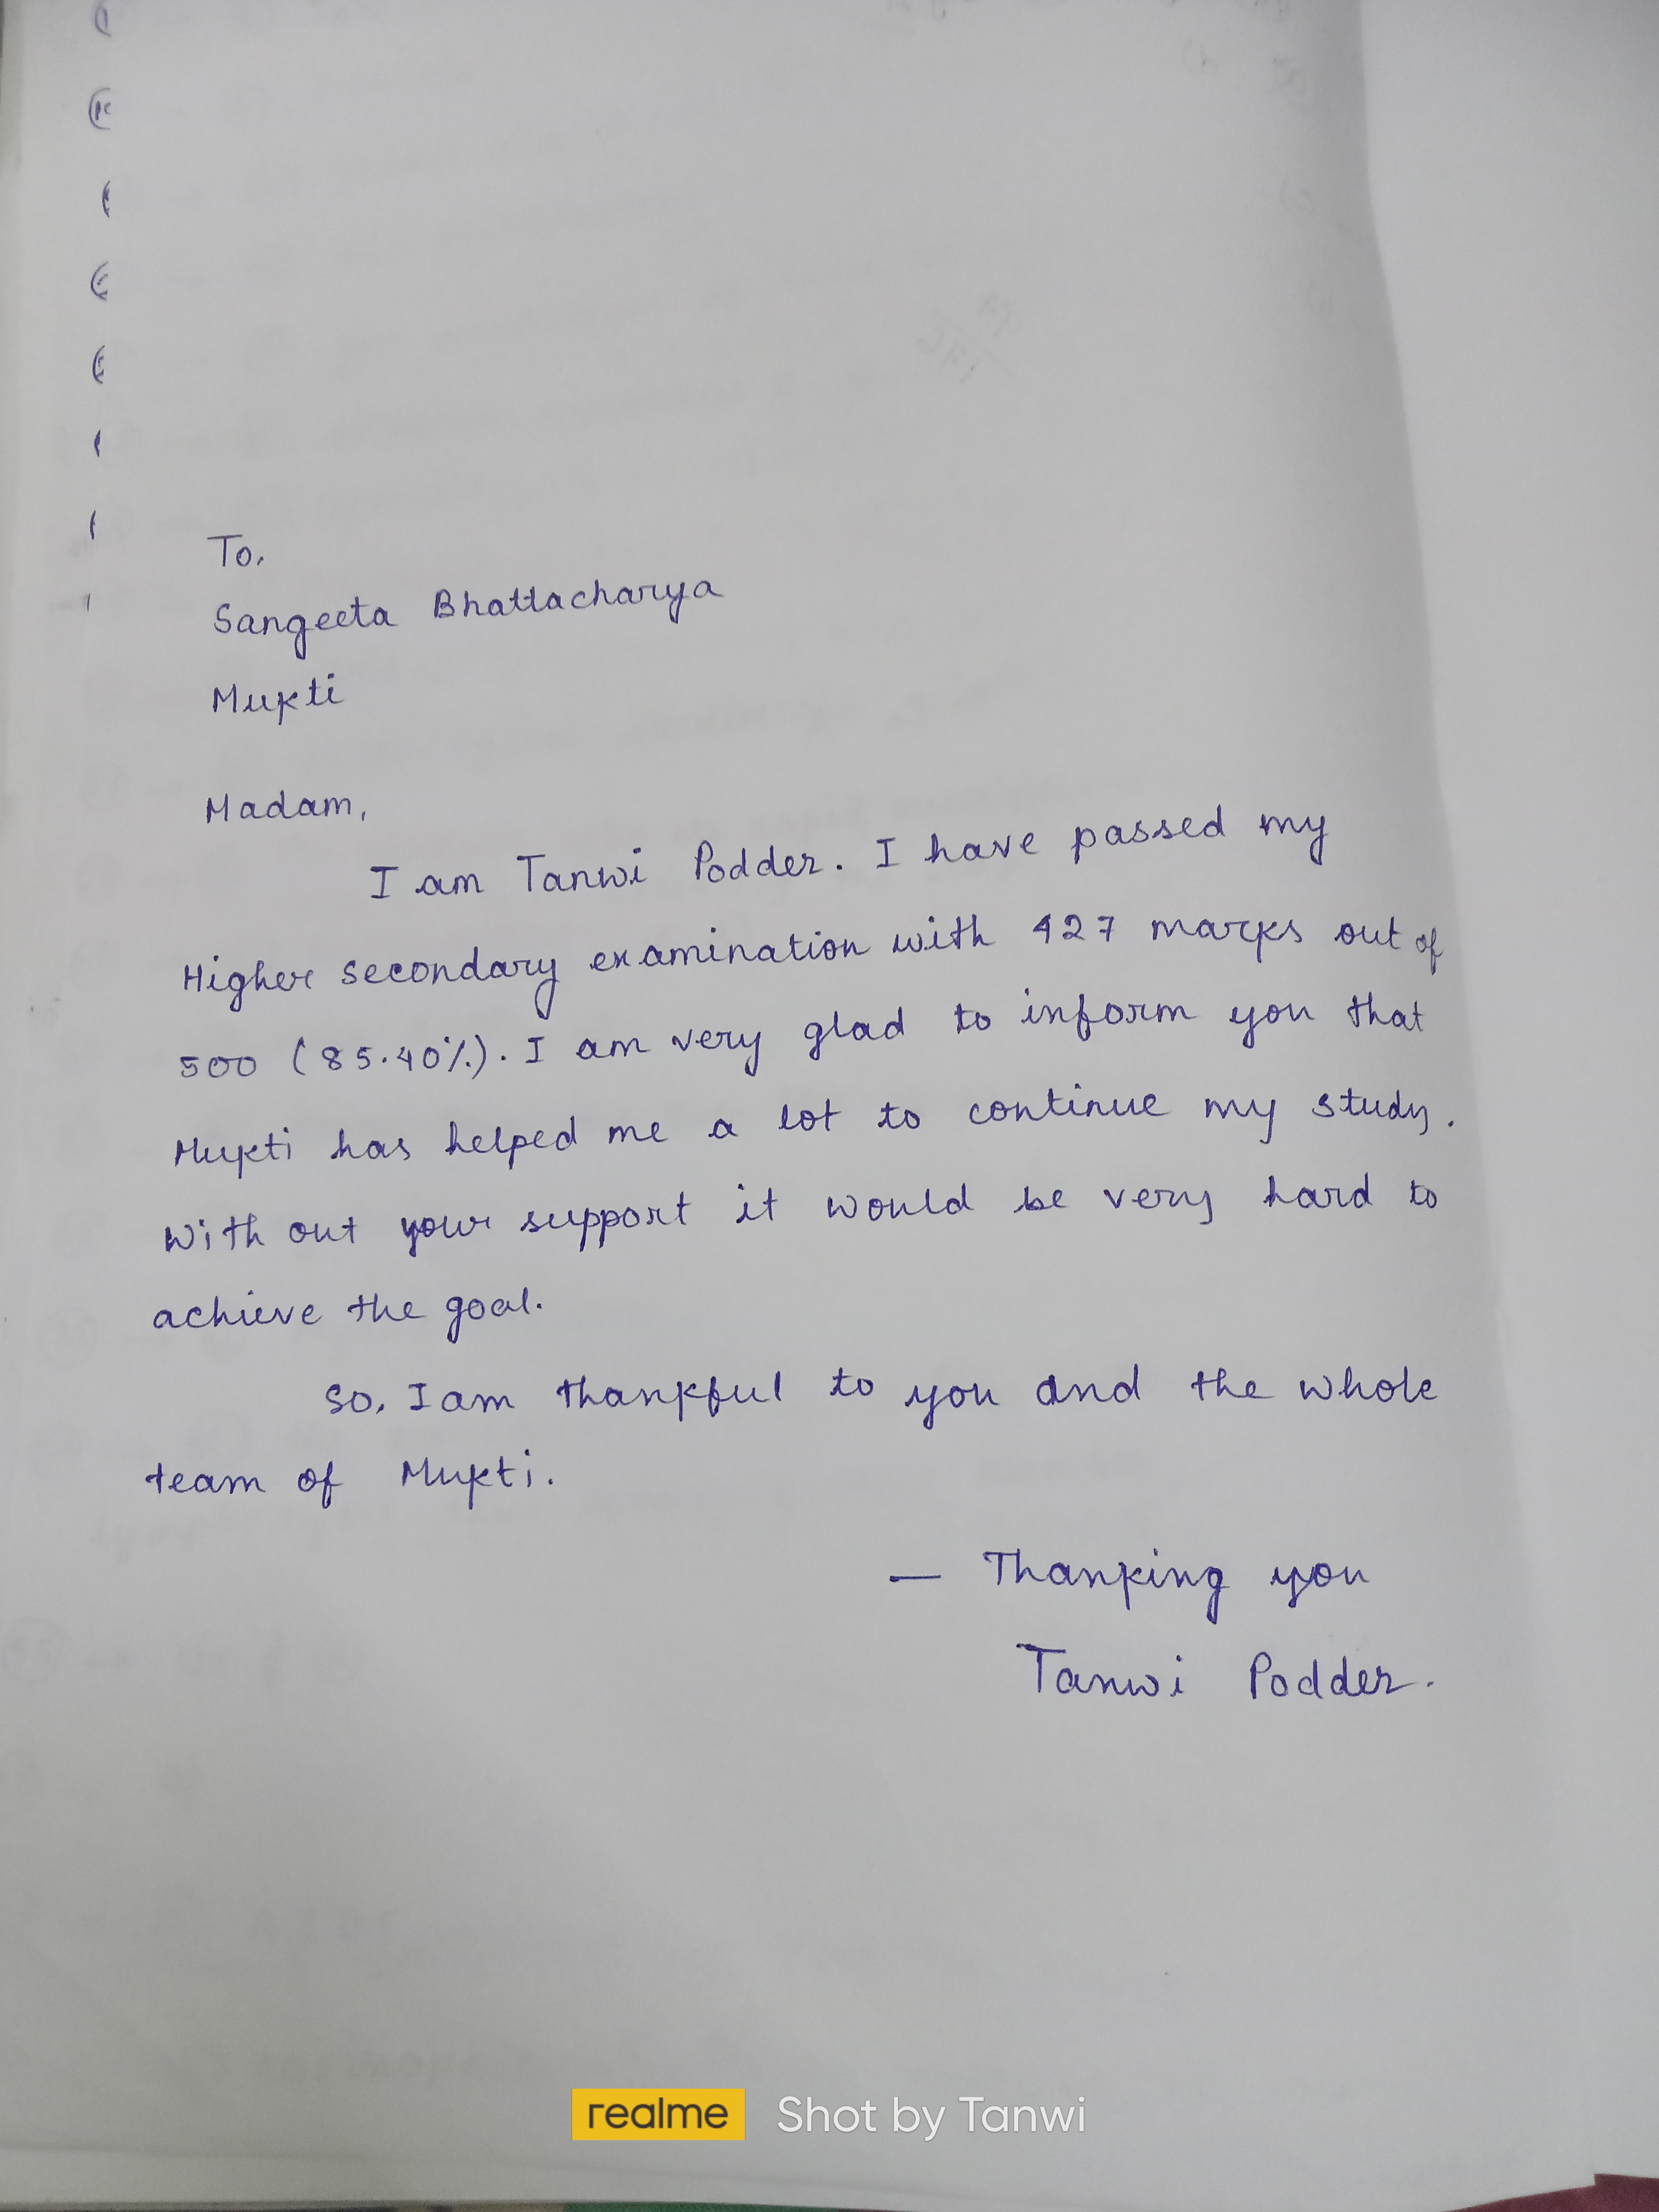 To,
Sangeeta Bhattacharya
Mukti
Madam,
I am Tanwi Podder. I have passed my
Higher secondary examination with 427 marks out of
500 (85.40%). I am very glad to inform you that
Mukti has helped me a lot to continue my study.
With out your support it would be very hard to
achieve the goal.
So, I am thankful to you and the whole
team of Mukti.
— Thanking you
Tanwi Podder.
realme Shot by Tanwi